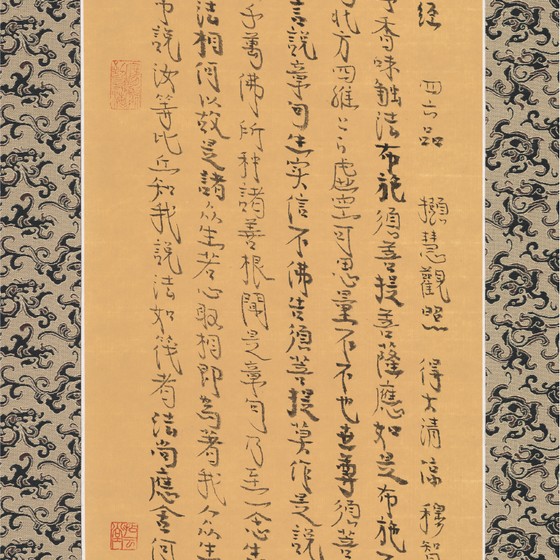 经 四六品 攄慧觀照 得大清凉 穆智
香味触法布施須菩提菩薩應如是布施
北方四維上下虛空可思量不不也世尊須菩
言說章句生实信不佛告須菩提莫作是說
千萬佛所種諸善根聞是章句乃至一念生
法相何以故是諸众生若心取相即為著我人众生
說汝等比丘知我說法如筏者法尚應舍何